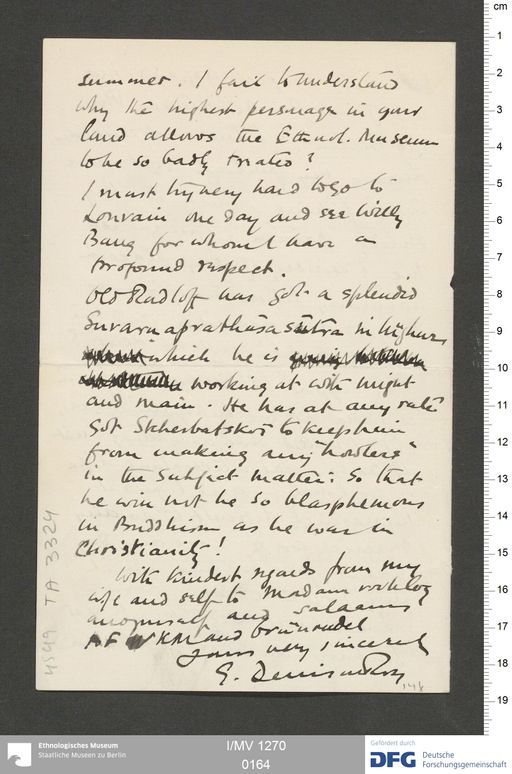 summer. I fail to understand
why the highest personage in your
land allows the Ethnol. Museum
to be so badly treated?
I must try very hard to go to
Louvain one day and see Willy
Bang for whom I have a
profound respect.
Old Radloff has got a splendid
Suvarnaprabhāsa sūtra in Uighur,
which he is
working at with might
and main. He has at any rate
got Stcherbatskoi to keep him
from making any "howlers"
in the subject matter: so that
he will not be so blasphemous
in Buddhism as he was in
Christianity!
With kindest regards from my
wife and self to Madam
and yourself and salaams
FWKM and Grünwedel
Yours very sincerely
E. Denison Ross
148
4549 TA 3324
cm
1
2
3
4
5
6
7
8
9
10
11
12
13
14
15
16
17
18
19
Ethnologisches Museum
Staatliche Museen zu Berlin
I/MV 1270
0164
Gefördert durch
DFG Deutsche
Forschungsgemeinschaft